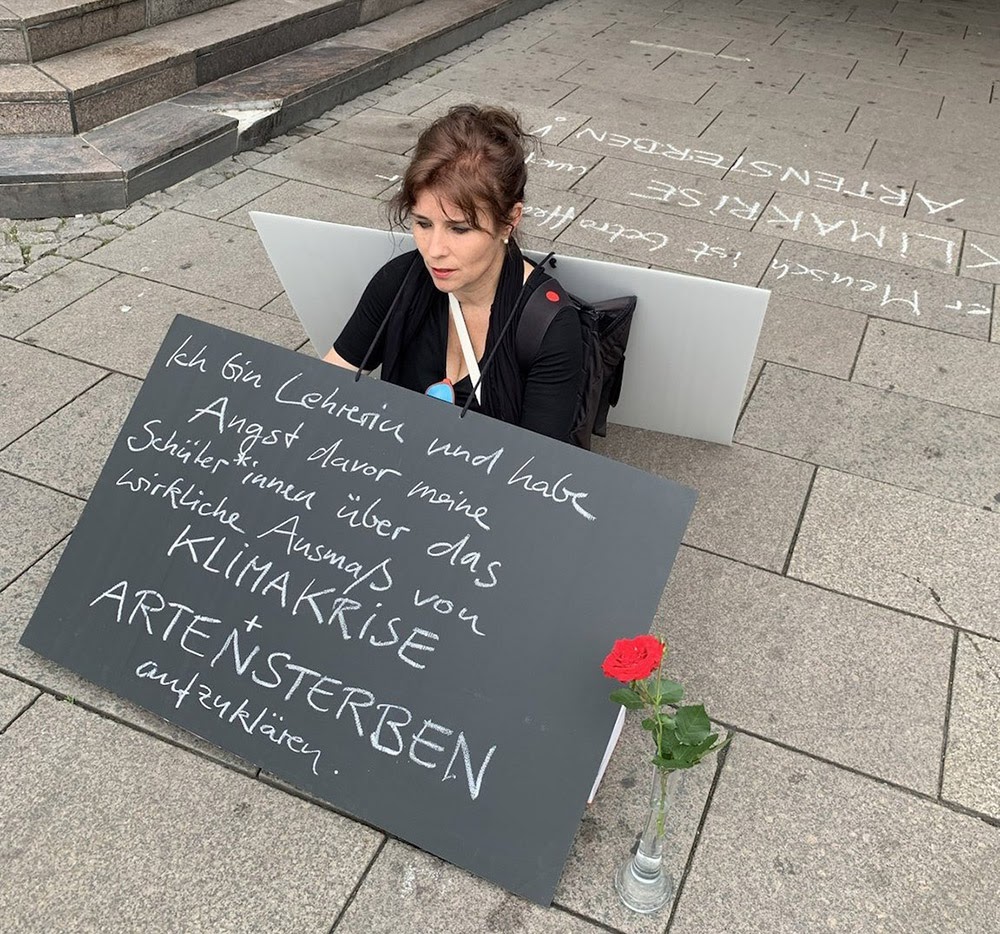 Ich bin Lehrerin und habe
Angst davor meine
Schüler*innen über das
wirkliche Ausmaß von
KLIMAKRISE
+
ARTENSTERBEN
aufzuklären.
er Mensch ist betroffen
KLIMAKRISE und
ARTENSTERBEN